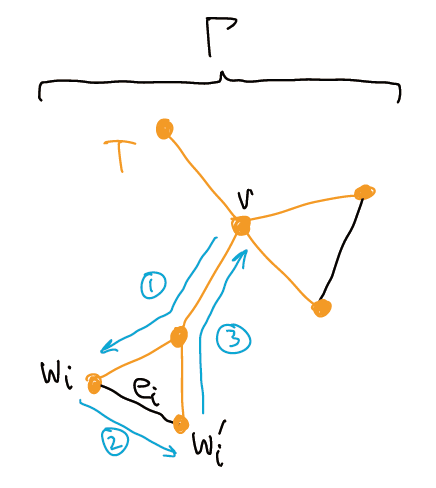 Γ
T
v
①
③
wᵢ
eᵢ
②
wᵢ′